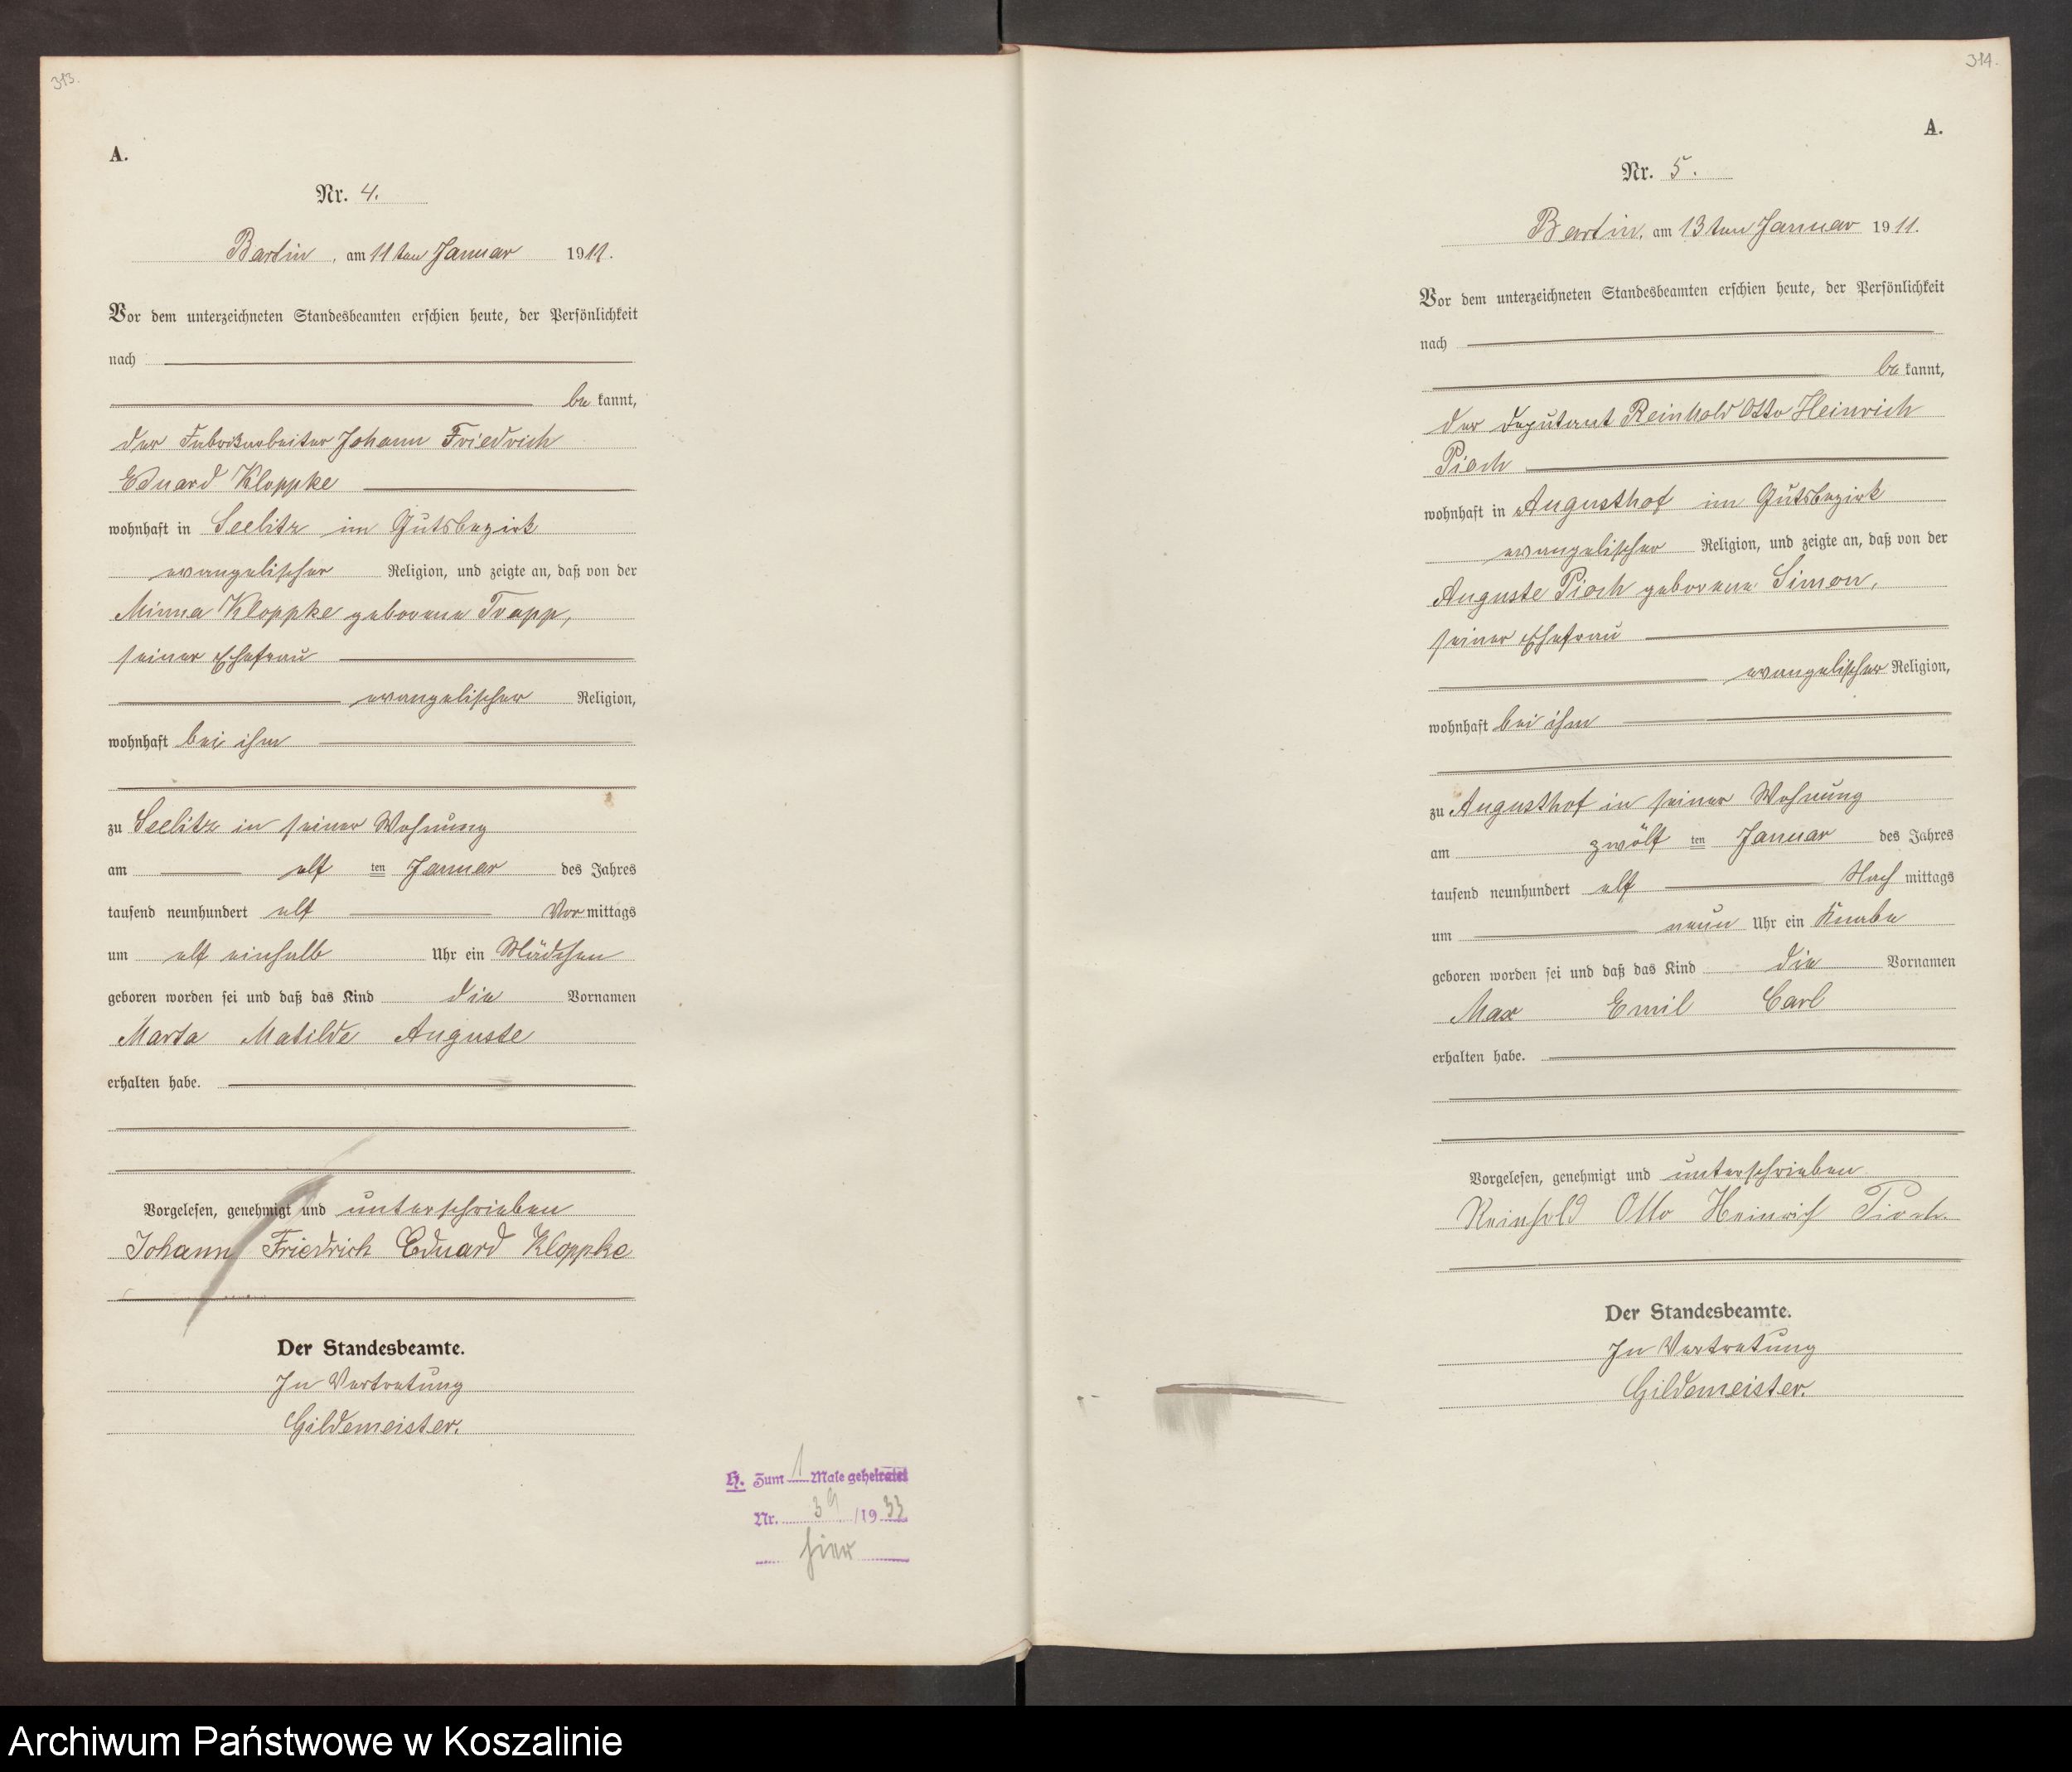 313.
A.
Nr. 4.
Bartin, am 11ten Januar 1911.
Vor dem unterzeichneten Standesbeamten erschien heute, der Persönlichkeit
nach
bekannt,
der Fabrikarbeiter Johann Friedrich
Eduard Kloppke
wohnhaft in Seelitz im Gutsbezirk
evangelischer Religion, und zeigte an, daß von der
Minna Kloppke geborene Trapp,
seiner Ehefrau
evangelischer Religion,
wohnhaft bei ihm
zu Seelitz in seiner Wohnung
am elf ten Januar des Jahres
tausend neunhundert elf Vormittags
um elf einhalb Uhr ein Mädchen
geboren worden sei und daß das Kind die Vornamen
Marta Matilde Auguste
erhalten habe.
Vorgelesen, genehmigt und unterschrieben
Johann Friedrich Eduard Kloppke
Der Standesbeamte.
In Vertretung
Gildemeister.
H. Zum 1 Male geheiratet
Nr. 39 /1933
hier
314.
A.
Nr. 5.
Bartin, am 13ten Januar 1911.
Vor dem unterzeichneten Standesbeamten erschien heute, der Persönlichkeit
nach
bekannt,
der Deputant Reinhold Otto Heinrich
Pioch
wohnhaft in Augusthof im Gutsbezirk
evangelischer Religion, und zeigte an, daß von der
Auguste Pioch geborene Simon,
seiner Ehefrau
evangelischer Religion,
wohnhaft bei ihm
zu Augusthof in seiner Wohnung
am zwölf ten Januar des Jahres
tausend neunhundert elf Nachmittags
um neun Uhr ein Knabe
geboren worden sei und daß das Kind die Vornamen
Max Emil Carl
erhalten habe.
Vorgelesen, genehmigt und unterschrieben
Reinhold Otto Heinrich Pioch.
Der Standesbeamte.
In Vertretung
Gildemeister.
Archiwum Państwowe w Koszalinie